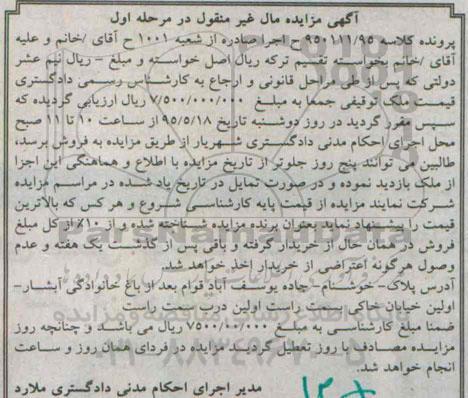 آگهی مزایده مال غیر منقول در مرحله اول
پرونده کلاسه ۹۵۰۱۱۱/۹۵ – اجرا صادره از شعبه ۱۰۰۱ ح آقای /خانم و علیه
آقای /خانم بخواسته تقسیم ترکه ریال اصل خواسته و مبلغ – ریال نیم عشر
دولتی که پس از طی مراحل قانونی و ارجاع به کارشناس رسمی دادگستری
قیمت ملک توقیفی جمعا به مبلغ ۷/۵۰۰/۰۰۰/۰۰۰ ریال ارزیابی گردیده که
سپس مقرر گردید در روز دوشنبه تاریخ ۹۵/۵/۱۸ از ساعت ۱۰ تا ۱۱ صبح
محل اجرای احکام مدنی دادگستری شهریار از طریق مزایده به فروش برسد،
طالبین می توانند پنج روز جلوتر از تاریخ مزایده با اطلاع و هماهنگی این اجرا
از ملک بازدید نموده و در صورت تمایل در تاریخ یاد شده در مراسم مزایده
شرکت نمایند مزایده از قیمت پایه کارشناسی شروع و هر کس که بالاترین
قیمت را پیشنهاد نماید بعنوان برنده مزایده شناخته شده و از ۱۰٪ از کل مبلغ
فروش در همان حال از خریدار گرفته و باقی پس از گذشت یک هفته و عدم
وصول هرگونه اعتراضی از خریدار اخذ خواهد شد.
آدرس پلاک- خوشنام- جاده یوسف آباد قوام بعد از باغ خانوادگی آبشار-
اولین خیابان خاکی سمت راست اولین درب سمت راست
ضمنا مبلغ کارشناسی به مبلغ ۷۵۰۰/۰۰/۰۰۰ ریال می باشد و چنانچه روز
مزایده مصادف با روز تعطیل گردید مزایده در فردای همان روز و ساعت
انجام خواهد شد.
مدیر اجرای احکام مدنی دادگستری ملارد
ParsNamadData
۰۲۱-۸۸۳۴۹۶۷۰-۵